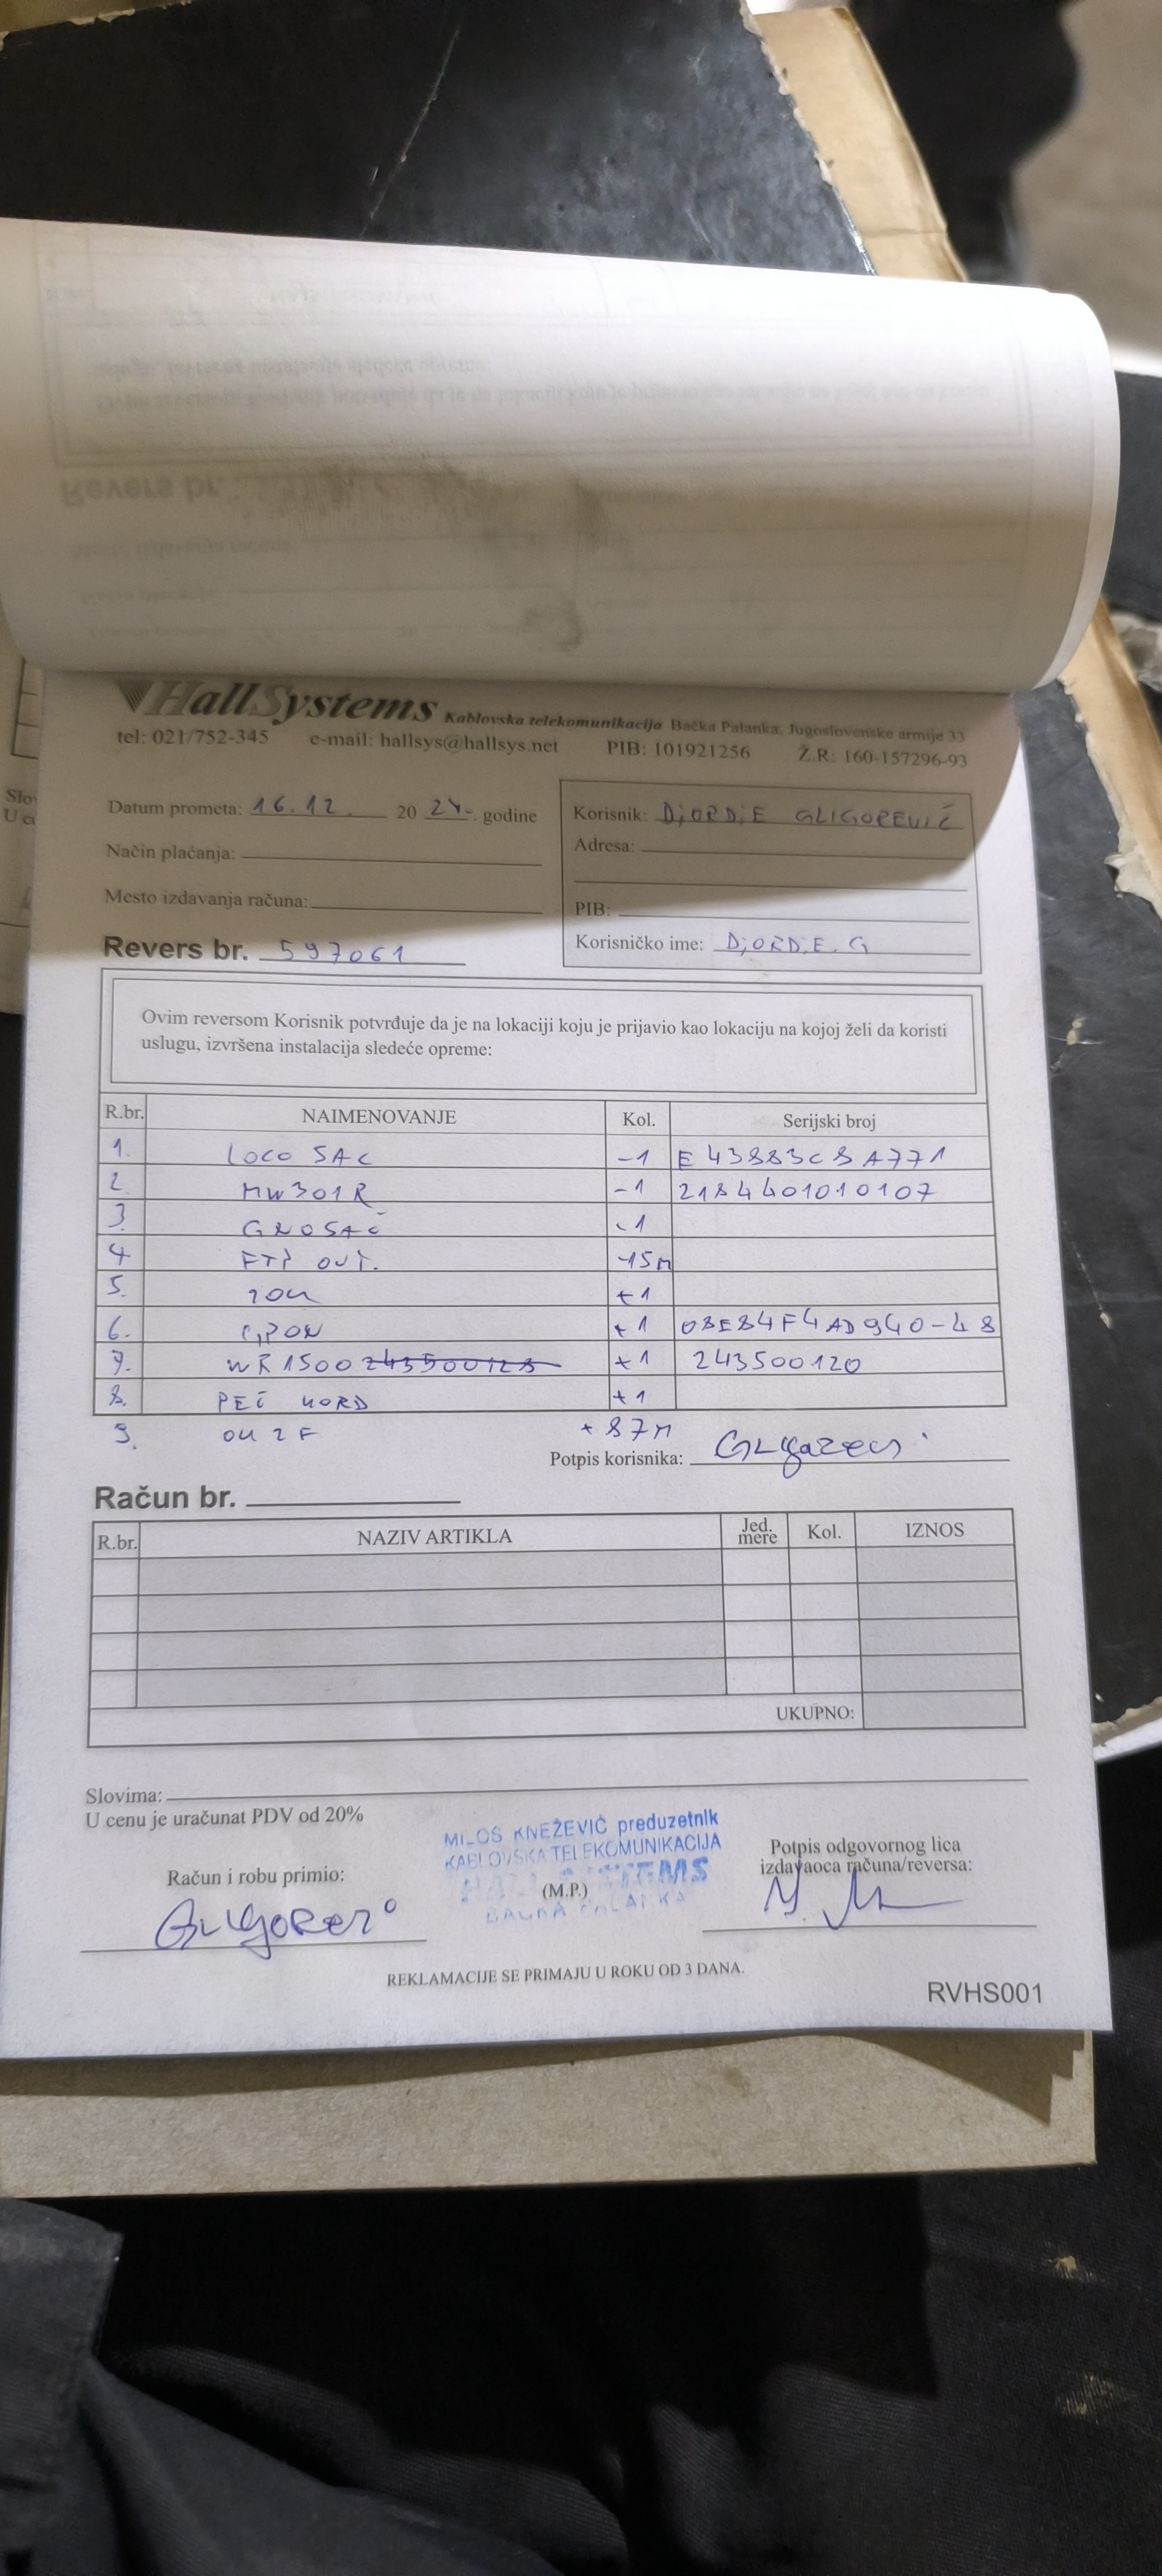 HallSystems Kablovska telekomunikacija Bačka Palanka, Jugoslovenske armije 33
tel: 021/752-345 e-mail: hallsys@hallsys.net PIB: 101921256 Ž.R: 160-157296-93
Datum prometa: 16.12. 20 24. godine
Način plaćanja:
Mesto izdavanja računa:
Revers br. 597061
Korisnik: DjORDjE GLIGOREVIĆ
Adresa:
PIB:
Korisničko ime: DjORDjE.G
Ovim reversom Korisnik potvrđuje da je na lokaciji koju je prijavio kao lokaciju na kojoj želi da koristi
uslugu, izvršena instalacija sledeće opreme:
R.br. NAIMENOVANJE Kol. Serijski broj
1. LOCO 5AC -1 E43883C8A771
2. MW301R -1 2184401010107
3. -1
4. FTP OUT. -15M
5. +1
6. GPON +1 08E84F4AD940-48
7. WR1500 +1 243500120
8. PEČ KORD +1
9. OK 2F +87M
Potpis korisnika:
Račun br.
R.br. NAZIV ARTIKLA Jed. mere Kol. IZNOS
UKUPNO:
Slovima:
U cenu je uračunat PDV od 20%
MILOŠ KNEŽEVIĆ preduzetnik
KABLOVSKA TELEKOMUNIKACIJA
Račun i robu primio:
(M.P.)
Potpis odgovornog lica
izdavaoca računa/reversa:
REKLAMACIJE SE PRIMAJU U ROKU OD 3 DANA.
RVHS001